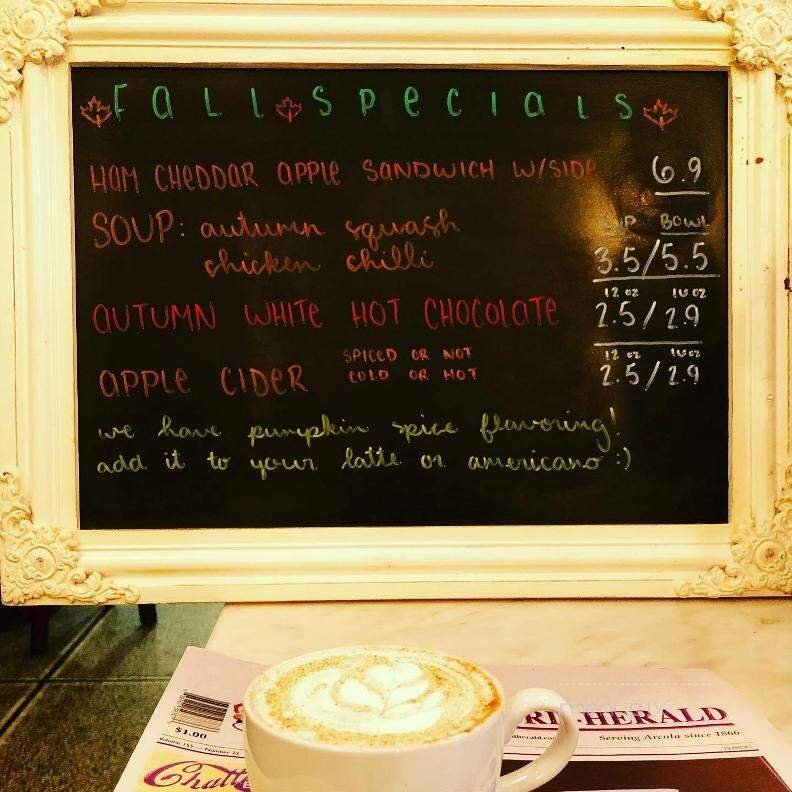 Fall Specials
HAM CHEDDAR APPLE SANDWICH W/SIDE 6.9
SOUP: autumn squash CUP BOWL
chicken chilli 3.5/5.5
12 oz 16 oz
AUTUMN WHITE HOT CHOCOLATE 2.5/2.9
SPICED OR NOT 12 oz 16 oz
APPLE CIDER COLD OR HOT 2.5/2.9
we have pumpkin spice flavoring!
add it to your latte or americano :)
$1.00
Volume 155 Number 22
-HERALD
Serving Arcola since 1866